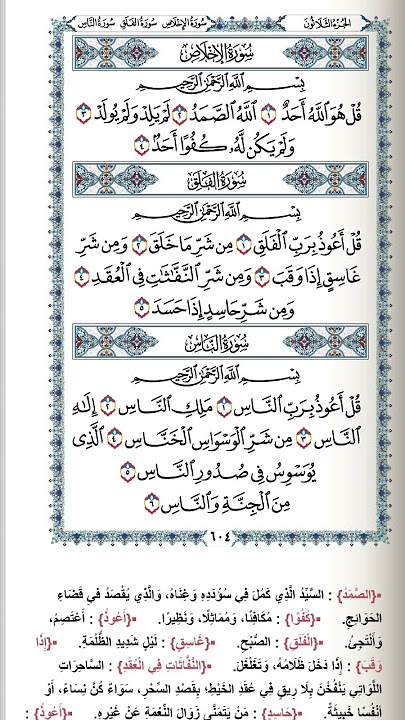 الجزء الثلاثون سورة الإخلاص سورة الفلق سورة الناس
سُورَةُ الإِخْلَاصِ
بِسْمِ اللَّهِ الرَّحْمَٰنِ الرَّحِيمِ
قُلْ هُوَ اللَّهُ أَحَدٌ ١ اللَّهُ الصَّمَدُ ٢ لَمْ يَلِدْ وَلَمْ يُولَدْ ٣
وَلَمْ يَكُن لَّهُۥ كُفُوًا أَحَدٌۢ ٤
سُورَةُ الفَلَقِ
بِسْمِ اللَّهِ الرَّحْمَٰنِ الرَّحِيمِ
قُلْ أَعُوذُ بِرَبِّ الْفَلَقِ ١ مِن شَرِّ مَا خَلَقَ ٢ وَمِن شَرِّ
غَاسِقٍ إِذَا وَقَبَ ٣ وَمِن شَرِّ النَّفَّٰثَٰتِ فِي الْعُقَدِ ٤
وَمِن شَرِّ حَاسِدٍ إِذَا حَسَدَ ٥
سُورَةُ النَّاسِ
بِسْمِ اللَّهِ الرَّحْمَٰنِ الرَّحِيمِ
قُلْ أَعُوذُ بِرَبِّ النَّاسِ ١ مَلِكِ النَّاسِ ٢ إِلَٰهِ
النَّاسِ ٣ مِن شَرِّ الْوَسْوَاسِ الْخَنَّاسِ ٤ الَّذِي
يُوَسْوِسُ فِي صُدُورِ النَّاسِ ٥
مِنَ الْجِنَّةِ وَالنَّاسِ ٦
٦٠٤
{الصَّمَدُ} : السَّيِّدُ الَّذِي كَمُلَ فِي سُؤْدَدِهِ وَغِنَاهُ، وَالَّذِي يُقْصَدُ فِي قَضَاءِ
الحَوَائِجِ. {كُفُوًا} : مُكَافِئًا، وَمُمَاثِلًا، وَنَظِيرًا. {أَعُوذُ} : أَعْتَصِمُ،
وَأَلْتَجِئُ. {الْفَلَقِ} : الصُّبْحِ. {غَاسِقٍ} : لَيْلٍ شَدِيدِ الظُّلْمَةِ. {إِذَا
وَقَبَ} : إِذَا دَخَلَ ظَلَامُهُ، وَتَغَلْغَلَ. {النَّفَّاثَاتِ فِي الْعُقَدِ} : السَّاحِرَاتِ
اللَّوَاتِي يَنْفُخْنَ بِلَا رِيقٍ فِي عُقَدِ الخَيْطِ؛ بِقَصْدِ السِّحْرِ، سَوَاءً كُنَّ نِسَاءً، أَوْ
أَنْفُسًا خَبِيثَةً. {حَاسِدٍ} : مَنْ يَتَمَنَّى زَوَالَ النِّعْمَةِ عَنْ غَيْرِهِ. {أَعُوذُ} :